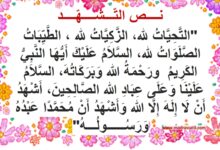 نـص التـشـــهـــد
"التَّحِيَّاتُ لله، الزَّكِيَّاتُ لله ، الطَّيِّبَاتُ
الصَّلَوَاتُ لله، السَّلَامُ عَلَيْكَ أَيُّهَا النَّبِيُّ
الكَرِيمُ وَرَحْمَةُ الله وَبَرَكَاتُهُ، السَّلَامُ
عَلَيْنَا وَعَلَى عِبَادِ الله الصالِحِينَ، أَشْهَدُ
أَنْ لَا إِلَهَ إِلَّا الله وَأَشْهَدُ أَنَّ مُحَمَّدًا عَبْدُهُ
وَرَسُــولُــهُ"